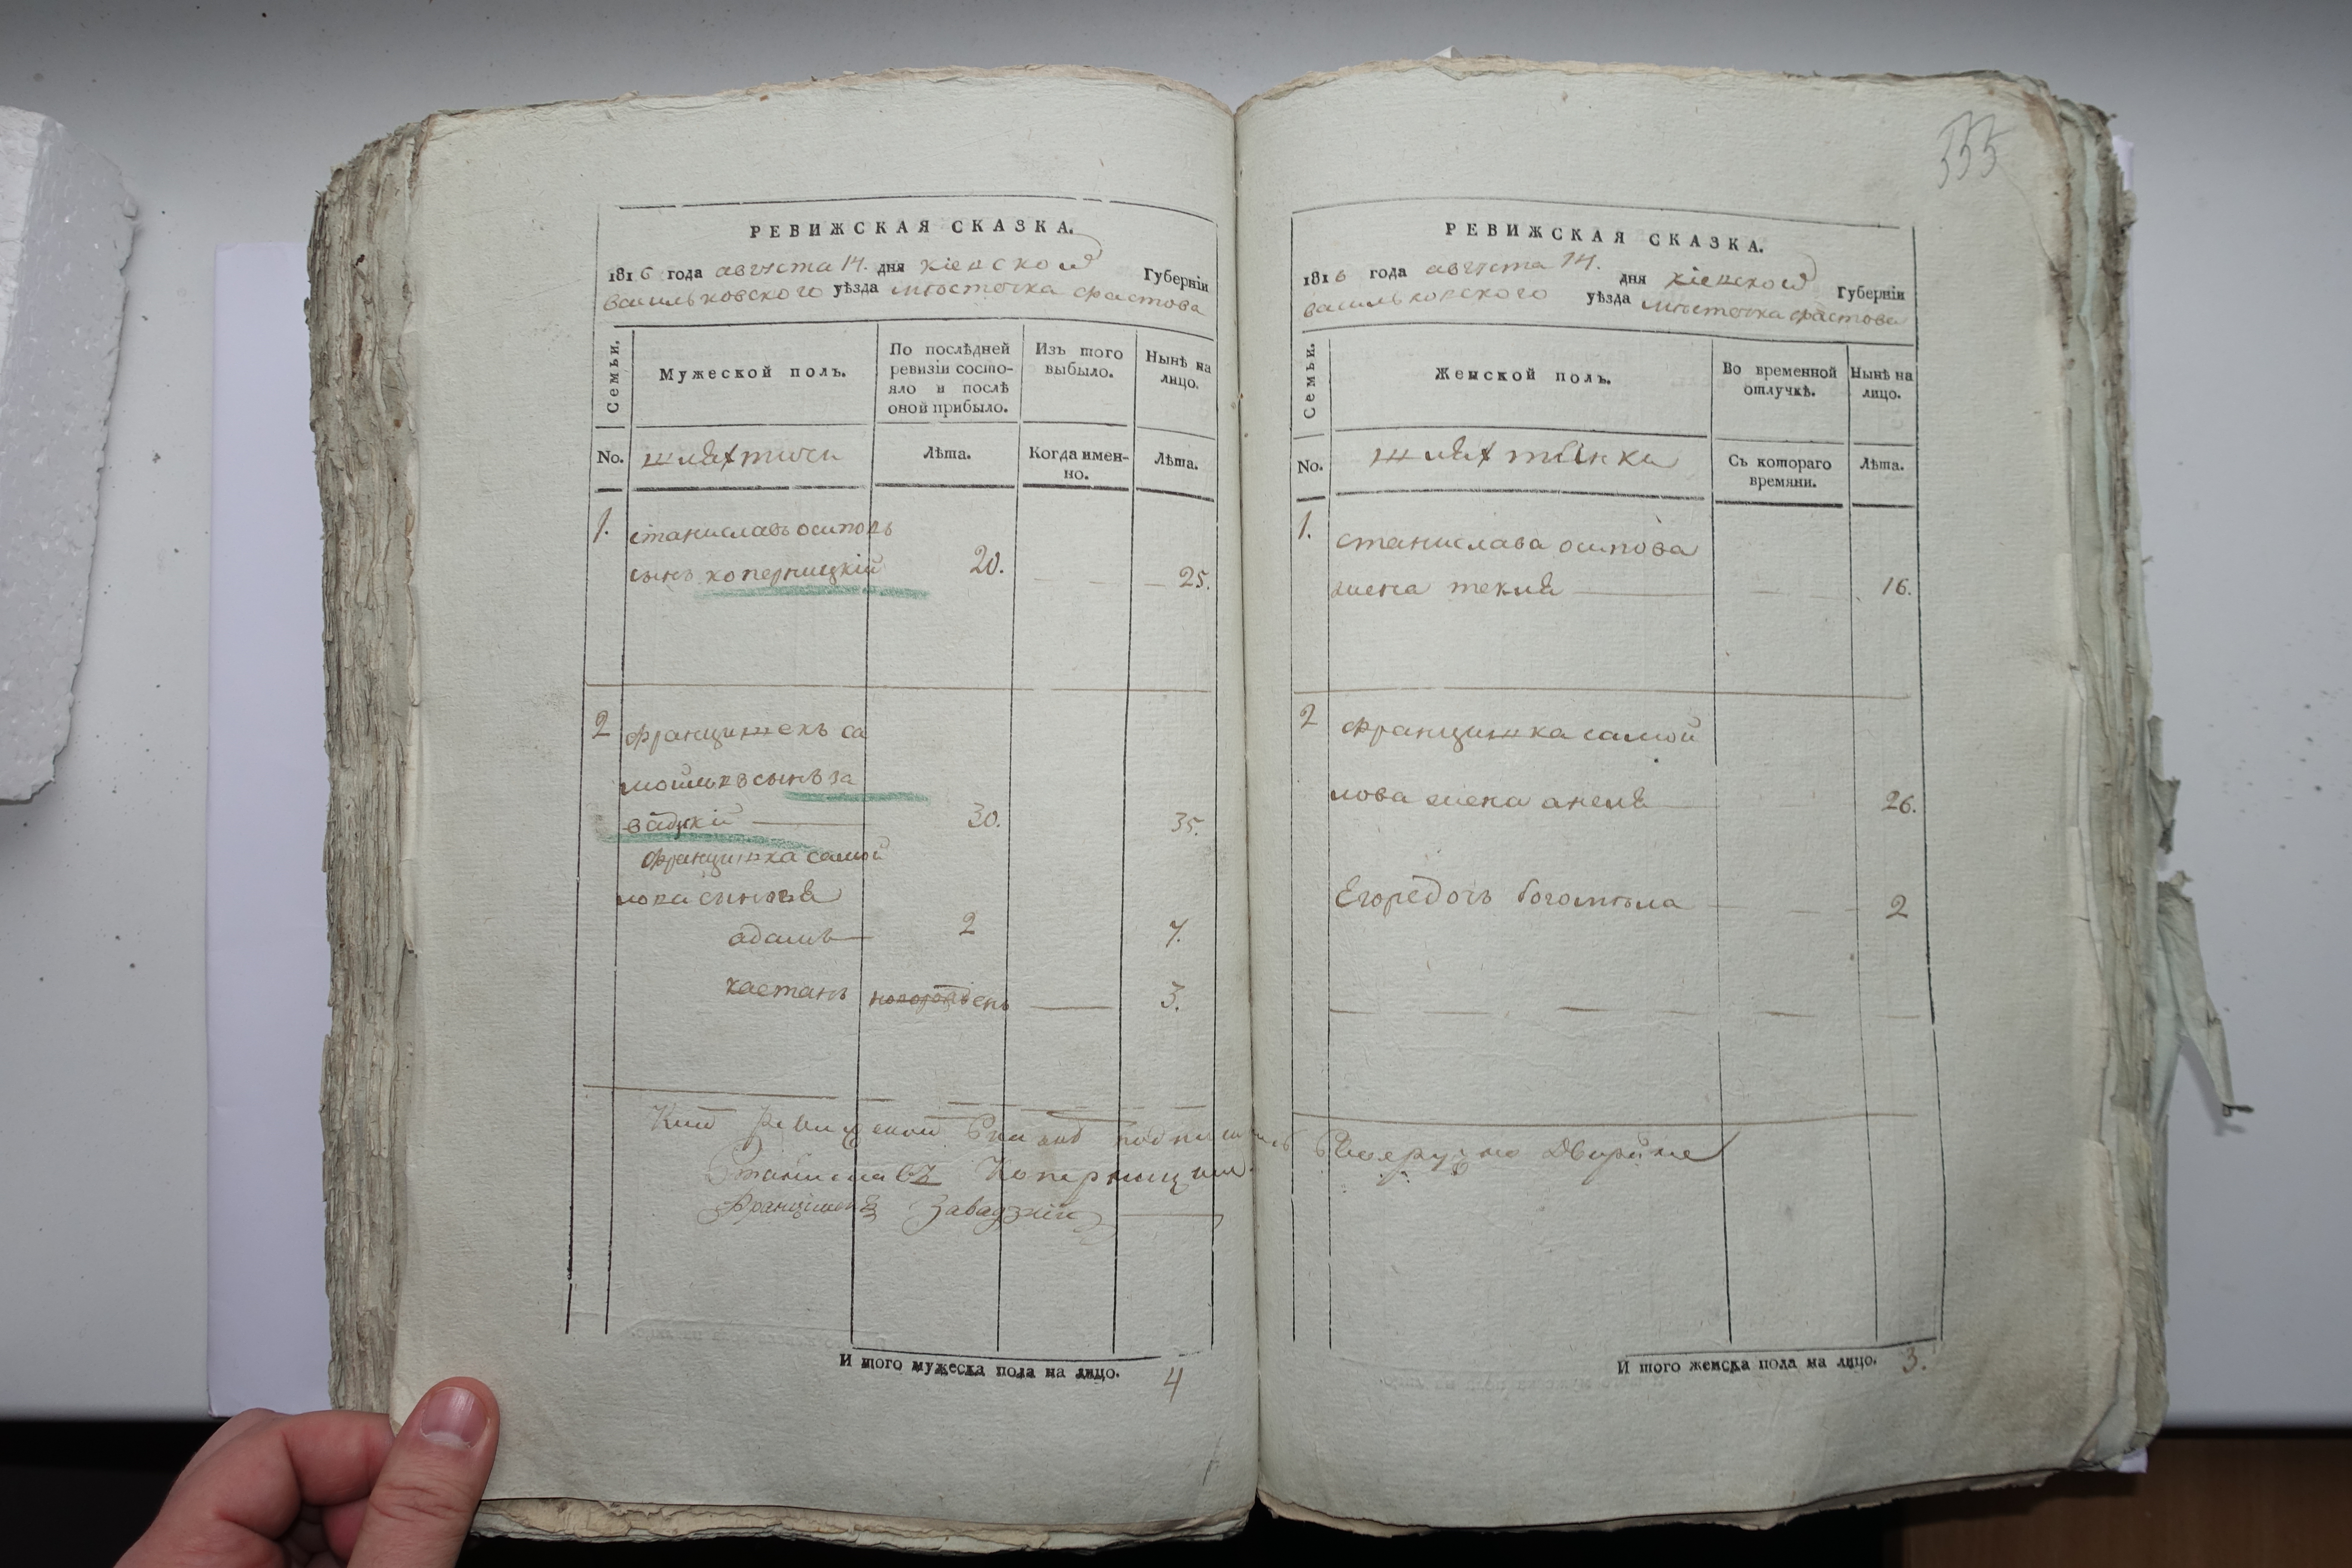 РЕВИЖСКАЯ СКАЗКА.
1816 года августа 14. дня кіевской Губерніи
васильковского уѣзда мѣстечка фастова
Семьи.
Мужеской полъ.
По послѣдней ревизіи состояло и послѣ оной прибыло.
Изъ того выбыло.
Нынѣ на лицо.
No.
шляхтичи
Лѣта.
Когда именно.
Лѣта.
1. станиславъ осиповъ
сынъ коперницкій 20. 25.
2 францишекъ са
мойловъ сынъ за
вадзкій 30. 35.
францишка самой
лова сыновья
адамъ 2 7.
каетанъ новорожденъ 3.
К сей Ревижской Сказке подписались
Станиславъ Коперницкий
Францишекъ Завадзкій
И того мужеска пола на лицо. 4
555
РЕВИЖСКАЯ СКАЗКА.
1816 года августа 14. дня кіевской Губерніи
васильковского уѣзда мѣстечка фастова
Семьи.
Женской полъ.
Во временной отлучкѣ.
Нынѣ на лицо.
No.
шляхтянки
Съ котораго времяни.
Лѣта.
1. станислава осипова
жена текля 16.
2 францишка самой
лова жена анеля 26.
Егоредочь богомѣла 2
дворяне
И того женска пола на лицо. 3.